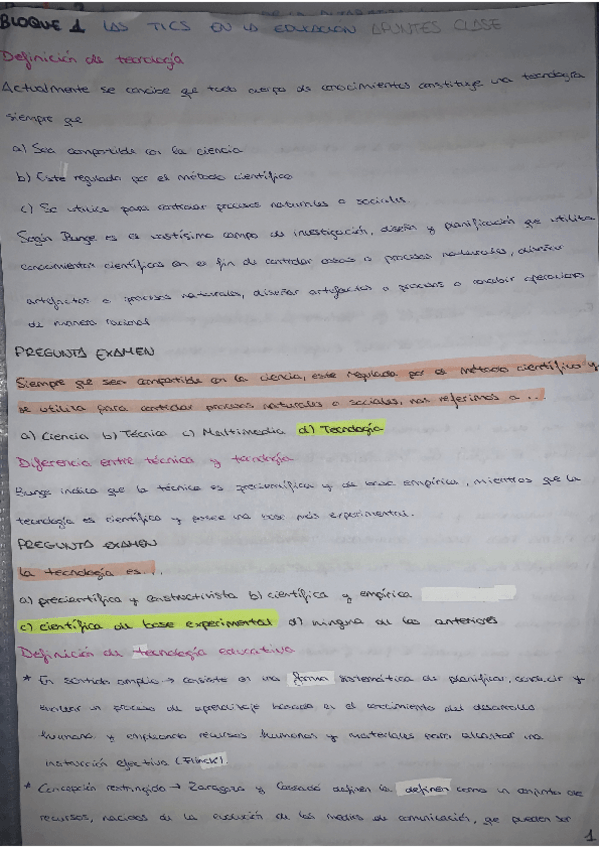 BLOQUE 1 LAS TICS EN LA EDUCACION APUNTES CLASE
Definición de tecnología
Actualmente se concibe que todo cuerpo de conocimientos constituye una tecnología
siempre que
a) Sea compartible con la ciencia
b) Este regulada por el método científico
c) Se utilice para controlar procesos naturales o sociales
Según Bunge es el vastísimo campo de investigación, diseño y planificación que utiliza
conocimientos científicos con el fin de controlar cosas o procesos naturales, diseñar
artefactos o procesos naturales, diseñar artefactos o procesos o concebir operaciones
de manera racional
PREGUNTA EXAMEN
Siempre que sea compartible con la ciencia, este regulado por el método científico y
se utiliza para controlar procesos naturales o sociales, nos referimos a ...
a) Ciencia b) Técnica c) Multimedia d) Tecnología
Diferencia entre técnica y tecnología
Bunge indica que la técnica es precientífica y de base empírica, mientras que la
tecnología es científica y posee una base más experimental.
PREGUNTA EXAMEN
La tecnología es...
a) precientífica y constructivista b) científica y empírica
c) científica de base experimental d) ninguna de las anteriores
Definición de tecnología educativa
* En sentido amplio → consiste en una forma sistemática de planificar, conducir y
evaluar un proceso de aprendizaje basada en el conocimiento del desarrollo
humano y empleando recursos humanos y materiales para alcanzar una
instrucción efectiva
* Concepción restringido → Zaragoza y Cassadó definen la definen como un conjunto de
recursos, nacidos de la evolución de los medios de comunicación, que pueden ser
1